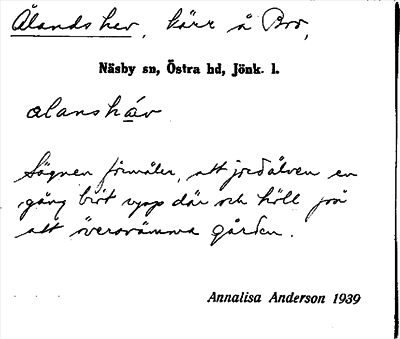 Ålands hev, kärr å Bro,
Näsby sn, Östra hd, Jönk. l.
alanshäv
Sägnen förmäler, att jordälven en
gång bröt upp där och höll på
att översvämma gården.
Annalisa Anderson 1939